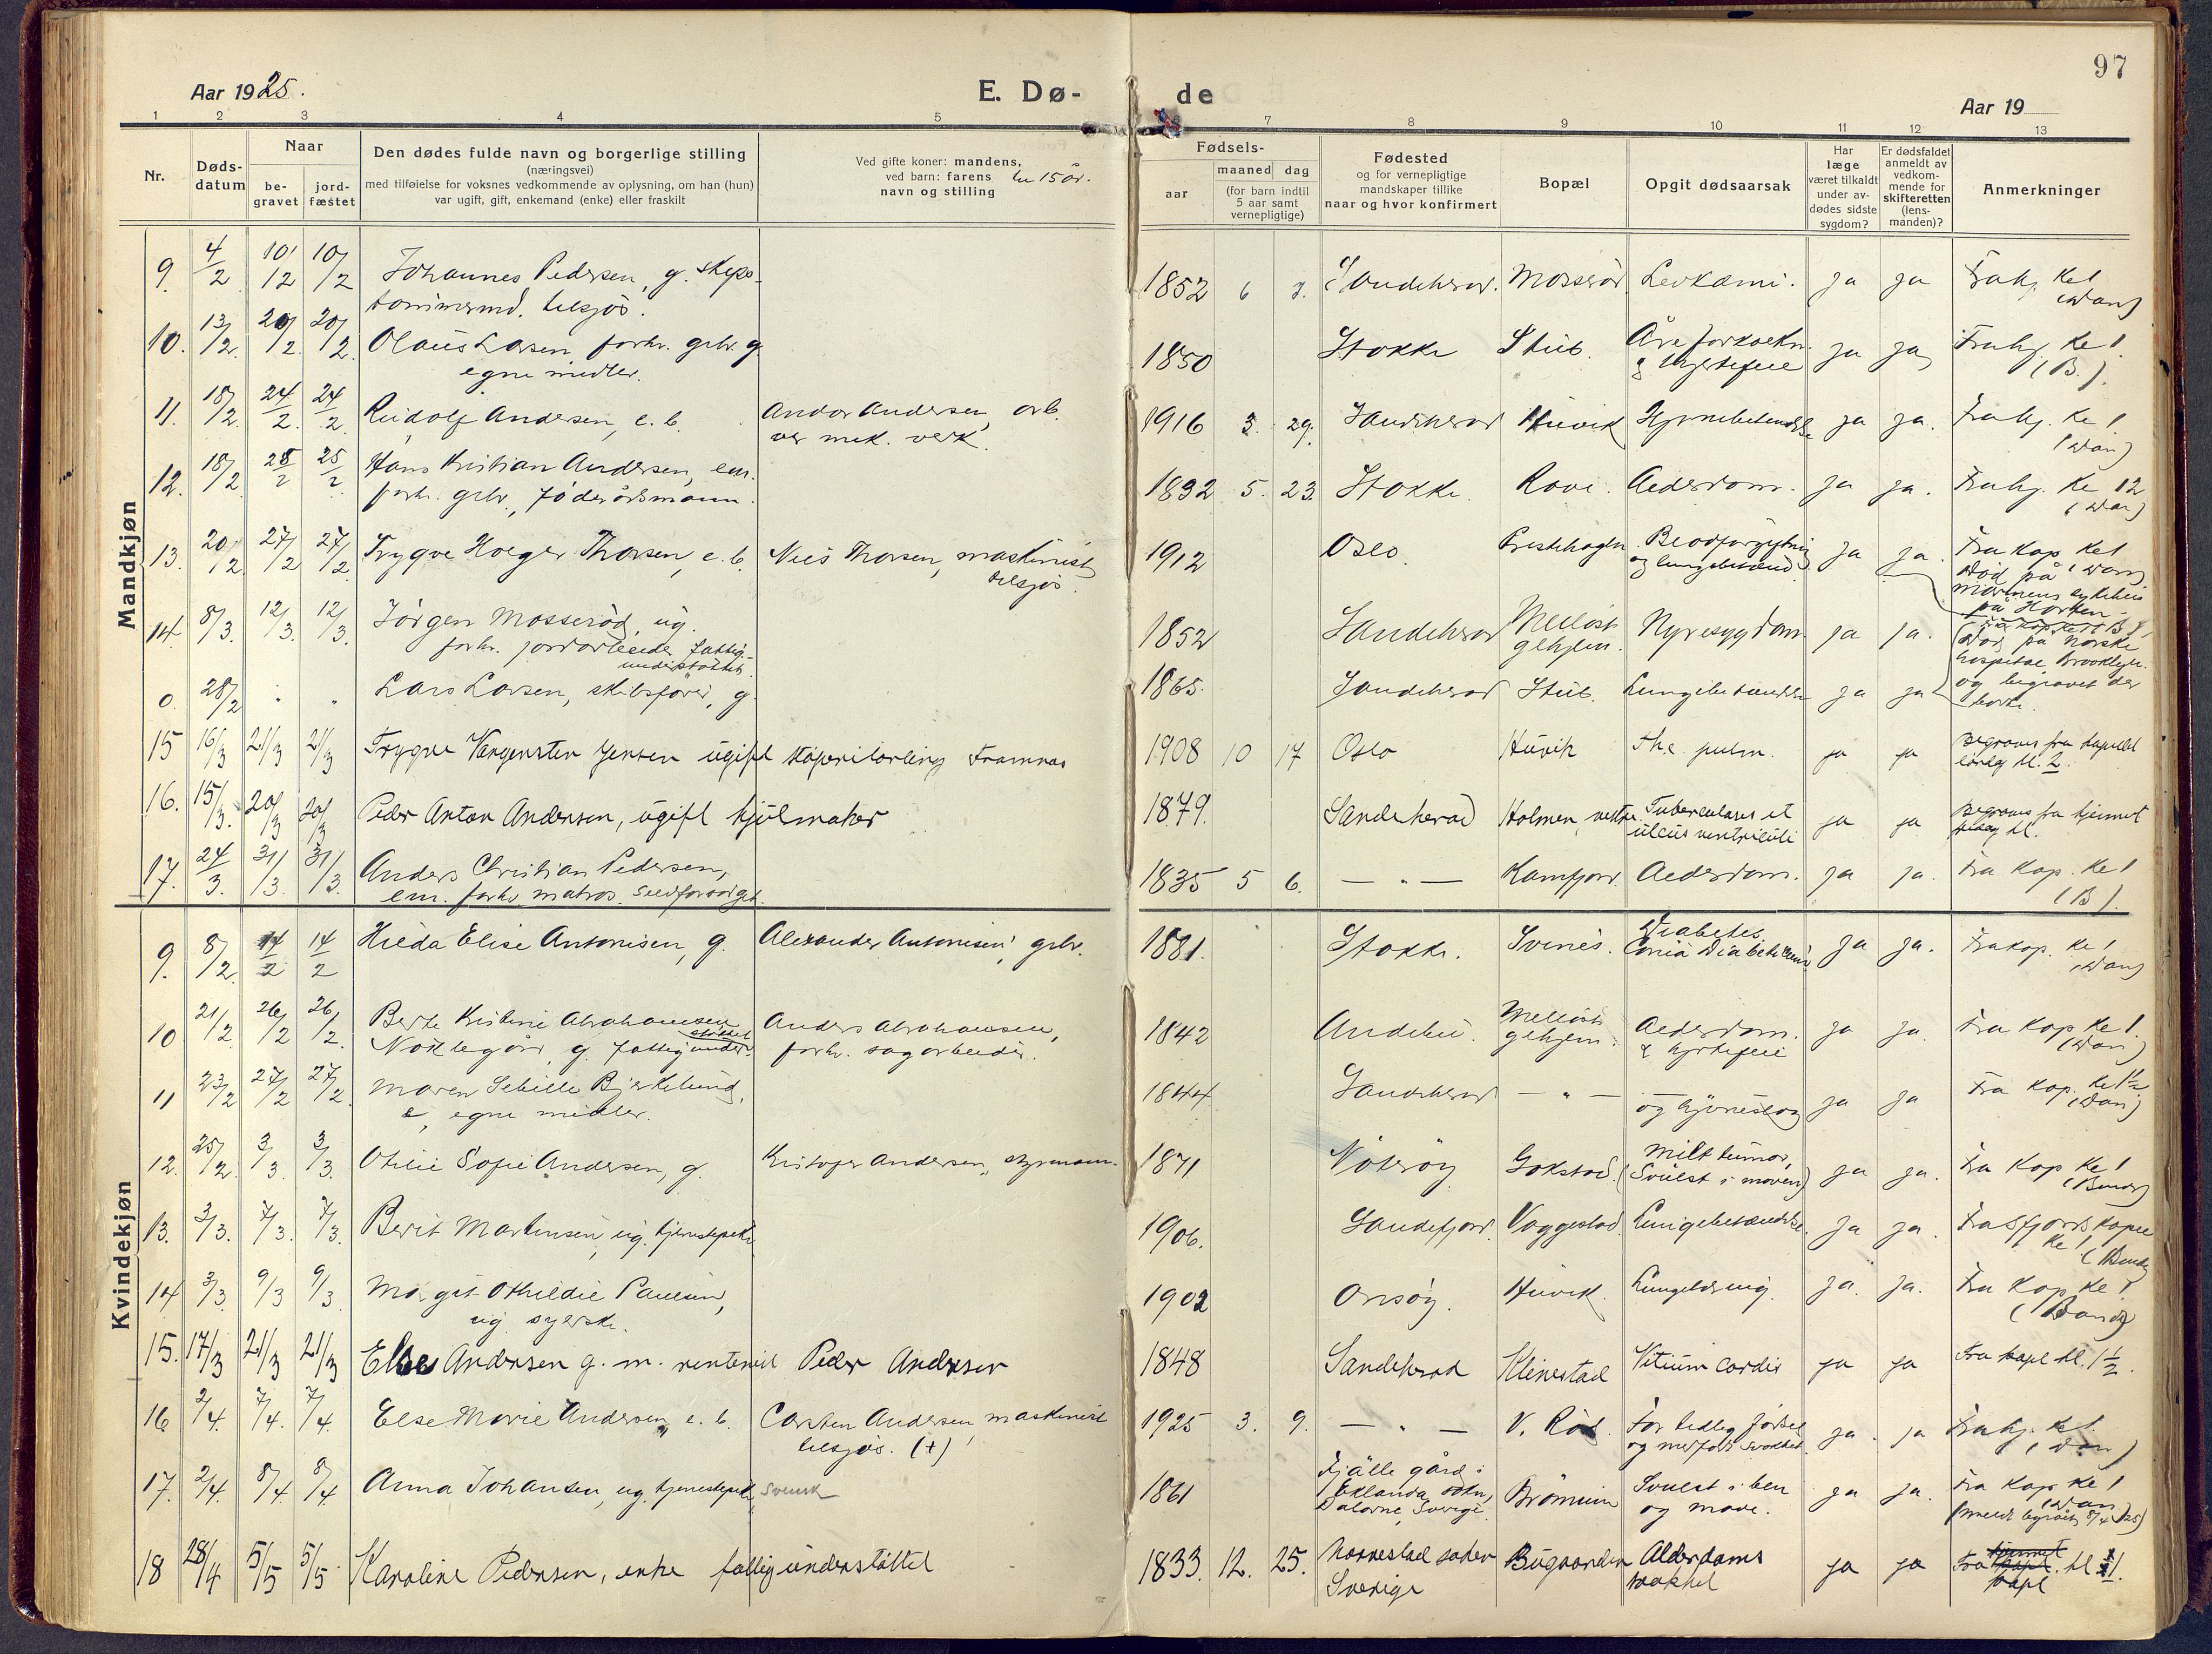 97
Aar 1925.
E. Dø-
de
Aar 19
1 2 3 4 5 7 8 9 10 11 12 13
Nr.
Døds-
datum
Naar
be-
gravet
jord-
fæstet
Den dødes fulde navn og borgerlige stilling
(næringsvei)
med tilføielse for voksnes vedkommende av oplysning, om han (hun)
var ugift, gift, enkemand (enke) eller fraskilt
Ved gifte koner: mandens,
ved barn: farens til 15 år.
navn og stilling
Fødsels-
aar
maaned dag
(for barn indtil
5 aar samt
vernepligtige)
Fødested
og for vernepligtige
mandskaper tillike
naar og hvor konfirmert
Bopæl
Opgit dødsaarsak
Har
læge
været tilkaldt
under av-
dødes sidste
sygdom?
Er dødsfaldet
anmeldt av
vedkom-
mende for
skifteretten
(lens-
manden)?
Anmerkninger
Mandkjøn
9. 4/2 10/2 10/2 Johannes Pedersen, g. skips- 1852 6 Sandeherad. Mosserød Levkæmi. ja ja Fra hj. kl 1
tømmermd. tilsjøs. (Dan)
10. 13/2 20/2 20/2 Olaus Larsen, forhv. grbr. g. 1850 Stokke Stub. Åreforkalkn. ja ja Fra hj. kl 1
egne midler. & hjertefeil (B.)
11. 18/2 24/2 24/2 Rudolf Andersen, e. b. Andor Andersen, arb. 1916 3. 29. Sandeherad Huvik Hjernebetændelse ja ja. Fra hj. kl 1
ver mek. verk. (Dan)
12. 18/2 25/2 25/2 Hans Kristian Andersen, em. 1832 5. 23. Stokke. Rove. Alderdom. ja ja. Fra hj. kl 12
forhv. grbr., føderådsmann. (Dan)
13. 20/2 27/2 27/2 Trygve Holger Thorsen, e. b. Nils Thorsen, maskinist 1912 Oslo. Prestehagen Blodforgiftning ja ja. Fra kap. kl 1
tilsjøs. og lungebetænd. Død på
marinens sykehus
på Horten.
14. 8/3. 12/3. 12/3. Jørgen Mosserød, ug. 1852 Sandeherad Melløst- Nyresygdom ja ja.
forhv. jordarbeider fattig- ghjem.
understøttet.
0. 28/2 " " Lars Larsen, skibsfører, g. 1865. Sandeherad Stub. Lungebetændelse ja ja (Død på Norske
hospital Brooklyn.
og begravet der
borte.
15 16/3 21/3 21/3 Trygve Vangensten Jensen ugift støperilærling Framnæs 1908 10 17 Oslo Huvik Tbc. pulm. ja ja Begraves fra kapellet
lørdag kl. 2.
16. 15/3. 20/3 20/3 Peder Anton Andersen, ugift hjulmaker 1879. Sandeherad Holmen, vestre. Tuberculosis et ja ja Begraves fra hjemmet
ulcus ventriculi kl.
17. 24/3. 31/3. 31/3. Anders Christian Pedersen, 1835 5 6. — " — Kamfjord. Alderdom. ja ja. Fra kap. kl 1
em. forhv. matros. selvforsørget. (B).
Kvindekjøn
9. 8/2 14/2 14/2 Hilda Elise Antonisen, g. Alexander Antonisen, grbr. 1881. Stokke. Svines. Diabetes ja ja. Fra kap. kl 1
(Dan)
10 21/2 26/2 26/2. Berte Kristine Abrahamsen Anders Abrahamsen, 1842 Andebu Melløst- Alderdom. ja ja. Fra kap kl 1.
Noklegård, g. fattigunderstøttet forhv. sagarbeider. ghjem. & hjertefeil (Dan)
11 23/2 27/2 27/2. Maren Sebille Bjerkelund, 1844 Sandeherad — " — ja ja Fra kap. kl 1½
e, egne midler. og hjerneslag (Dan)
12. 25/2. 3/3. 3/3. Othilie Sofie Andersen, g. Kristofer Andersen, styrmann. 1871 Nøterøy Gokstad. Milt tumor, ja ja. Fra kap kl 1
(Svulst i maven)
13. 3/3. 7/3. 7/3. Berit Martinsen, ug. tjenestepike 1906. Sandefjord. Vaggestad Lungebetændelse. ja ja. Fra Sfjords kapel
kl 1
14 3/3. 9/3 9/3 Margit Othildie Paulsen, 1902 Onsøy. Huvik Lungebl. ja. ja. Fra kap kl 1
ug. syerske.
15. 17/3 21/3 21/3 Else Andersen g. m. rentenist Peder Andersen 1848 Sandeherad Klinestad Vitium cordis ja ja Fra kapl kl. 1½.
16 2/4. 7/4. 7/4. Else Marie Andersen, e. b. Carsten Andersen, maskinist 1925 3. 9. — " — V. Rød. For tidlig fødsel ja. ja Fra hj. kl 1.
tilsjøs. (+) og medfødt svakhet (Dan)
17. 2/4. 8/4 8/4 Anna Johansen, ug. tjenestepike svensk 1861 gård i Svulst i ben ja ja. Fra kap kl 1
Dalarne, Sverige. og mave. (Dan)
18 28/4 5/5 5/5 Karoline Pedersen, enke fattigunderstøttet 1833. 12. 25. Sverige Bugaarden Alderdoms ja ja Fra kl 1.
svakhet kapl